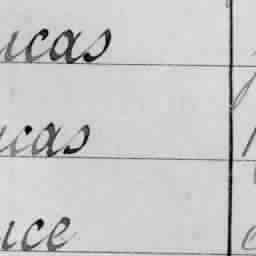 ucas
ucas
uce